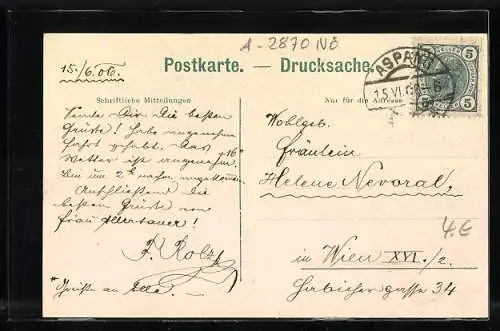 A-2870 NÖ
15./6.06.
Postkarte. — Drucksache.
ASPANG
15.VI.0
5 5
5 5
Schriftliche Mitteilungen
Nur für die Adresse
Sende Dir die besten
Grüße! Habe angenehme
Fahrt gehabt. Das
Wetter ist angenehm, +16°
Bin um 2 h nachm. angekommen.
Anschließend die
besten Grüße von
Frau
F. Kolz
* Grüße an
Wohlgeb.
Fräulein
Helene Nevoral,
4.€
in Wien XVI./2.
Habichergasse 34